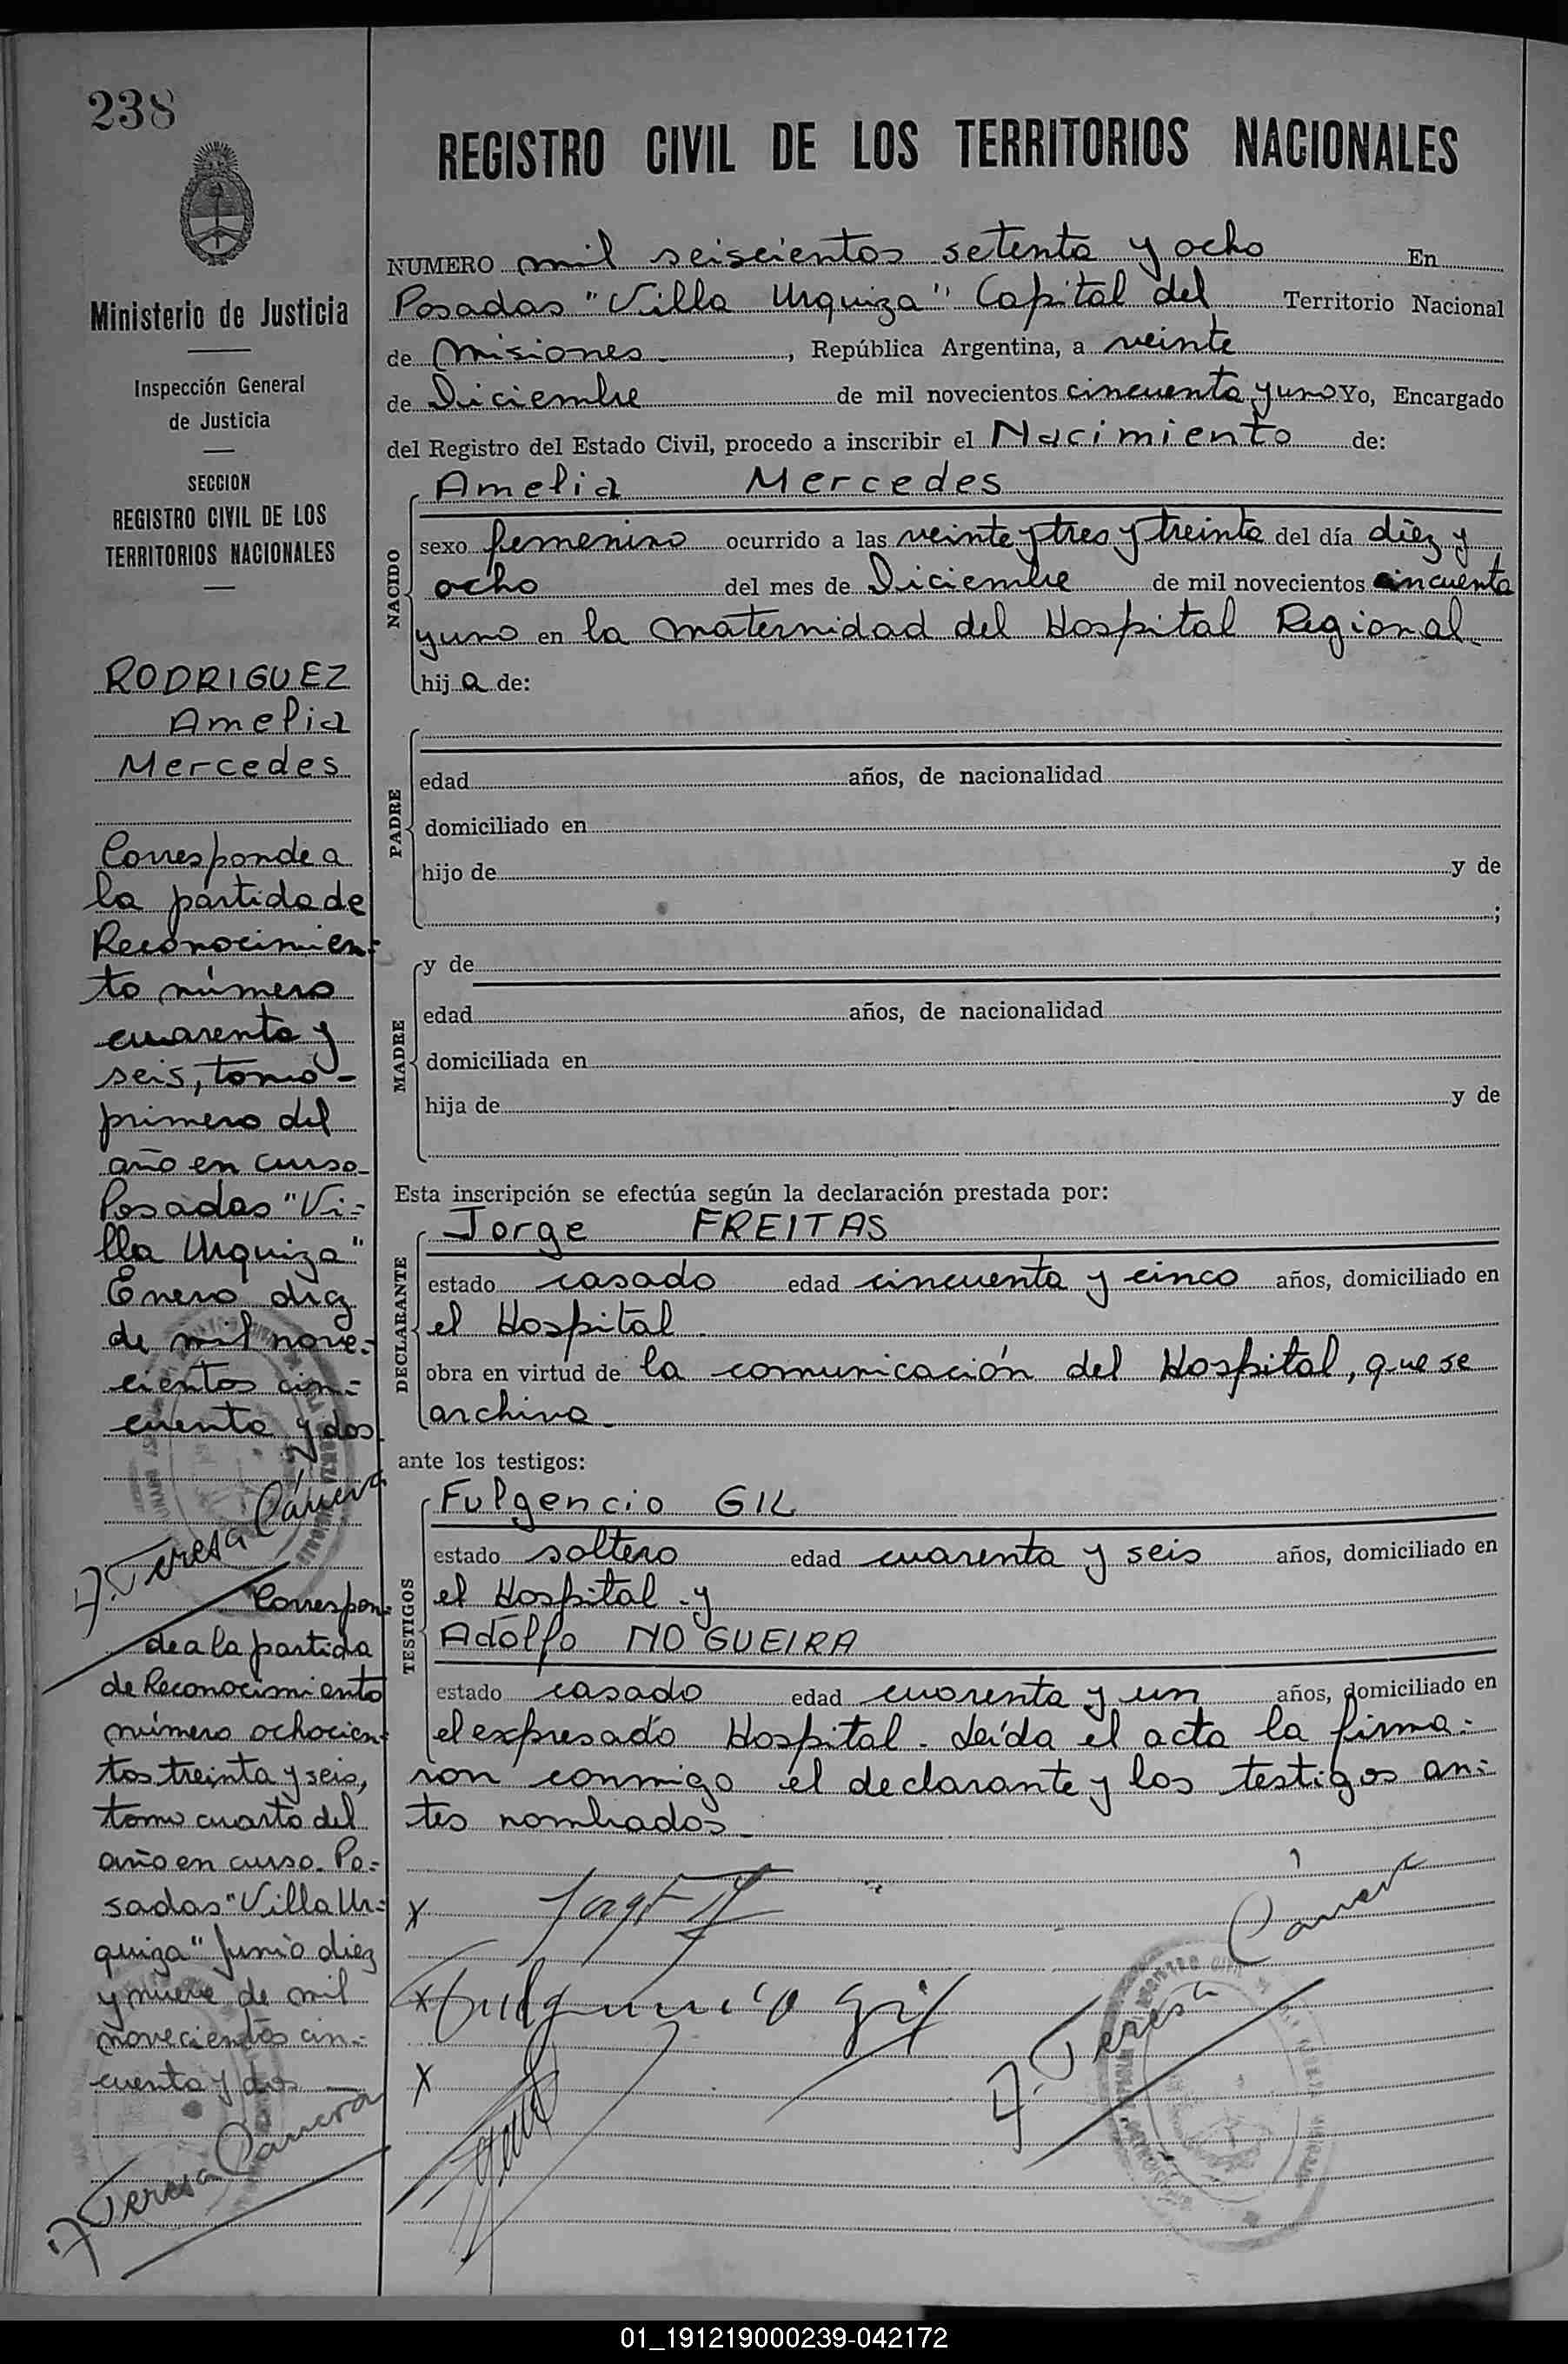 238
Ministerio de Justicia
Inspección General
de Justicia
SECCION
REGISTRO CIVIL DE LOS
TERRITORIOS NACIONALES
RODRIGUEZ
Amelia
Mercedes
Corresponde a
la partida de
Reconocimien=
to número
cuarenta y
seis, tomo-
primero del
año en curso-
Posadas "Vi=
lla Urquiza"
Enero diez
de mil nove=
cientos cin=
cuenta y dos
A. Teresa Cámera
Correspon=
de a la partida
de Reconocimiento
número ochocien=
tos treinta y seis,
tomo cuarto del
año en curso. Po=
sadas "Villa Ur=
quiza" Junio diez
y nueve de mil
novecientos cin=
cuenta y dos
A. Teresa Cámera
REGISTRO CIVIL DE LOS TERRITORIOS NACIONALES
NUMERO mil seiscientos setenta y ocho En
Posadas "Villa Urquiza" Capital del Territorio Nacional
de Misiones-, República Argentina, a veinte
de Diciembre de mil novecientos cincuenta y uno Yo, Encargado
del Registro del Estado Civil, procedo a inscribir el Nacimiento de:
NACIDO
Amelia Mercedes
sexo femenino ocurrido a las veinte y tres y treinta del día diez y
ocho del mes de Diciembre de mil novecientos cincuenta
y uno en la Maternidad del Hospital Regional.
hij a de:
PADRE
edad años, de nacionalidad
domiciliado en
hijo de y de
;
MADRE
y de
edad años, de nacionalidad
domiciliada en
hija de y de
Esta inscripción se efectúa según la declaración prestada por:
DECLARANTE
Jorge FREITAS
estado casado edad cincuenta y cinco años, domiciliado en
el Hospital.
obra en virtud de la comunicación del Hospital, que se
archiva-
ante los testigos:
TESTIGOS
Fulgencio GIL
estado soltero edad cuarenta y seis años, domiciliado en
el Hospital - y
Adolfo NOGUEIRA
estado casado edad cuarenta y un años, domiciliado en
el expresado Hospital - Leída el acta la firma=
ron conmigo el declarante y los testigos an=
tes nombrados-
x
x Fulgencio Gil
x
A. Teresa Cámera
01_191219000239-042172